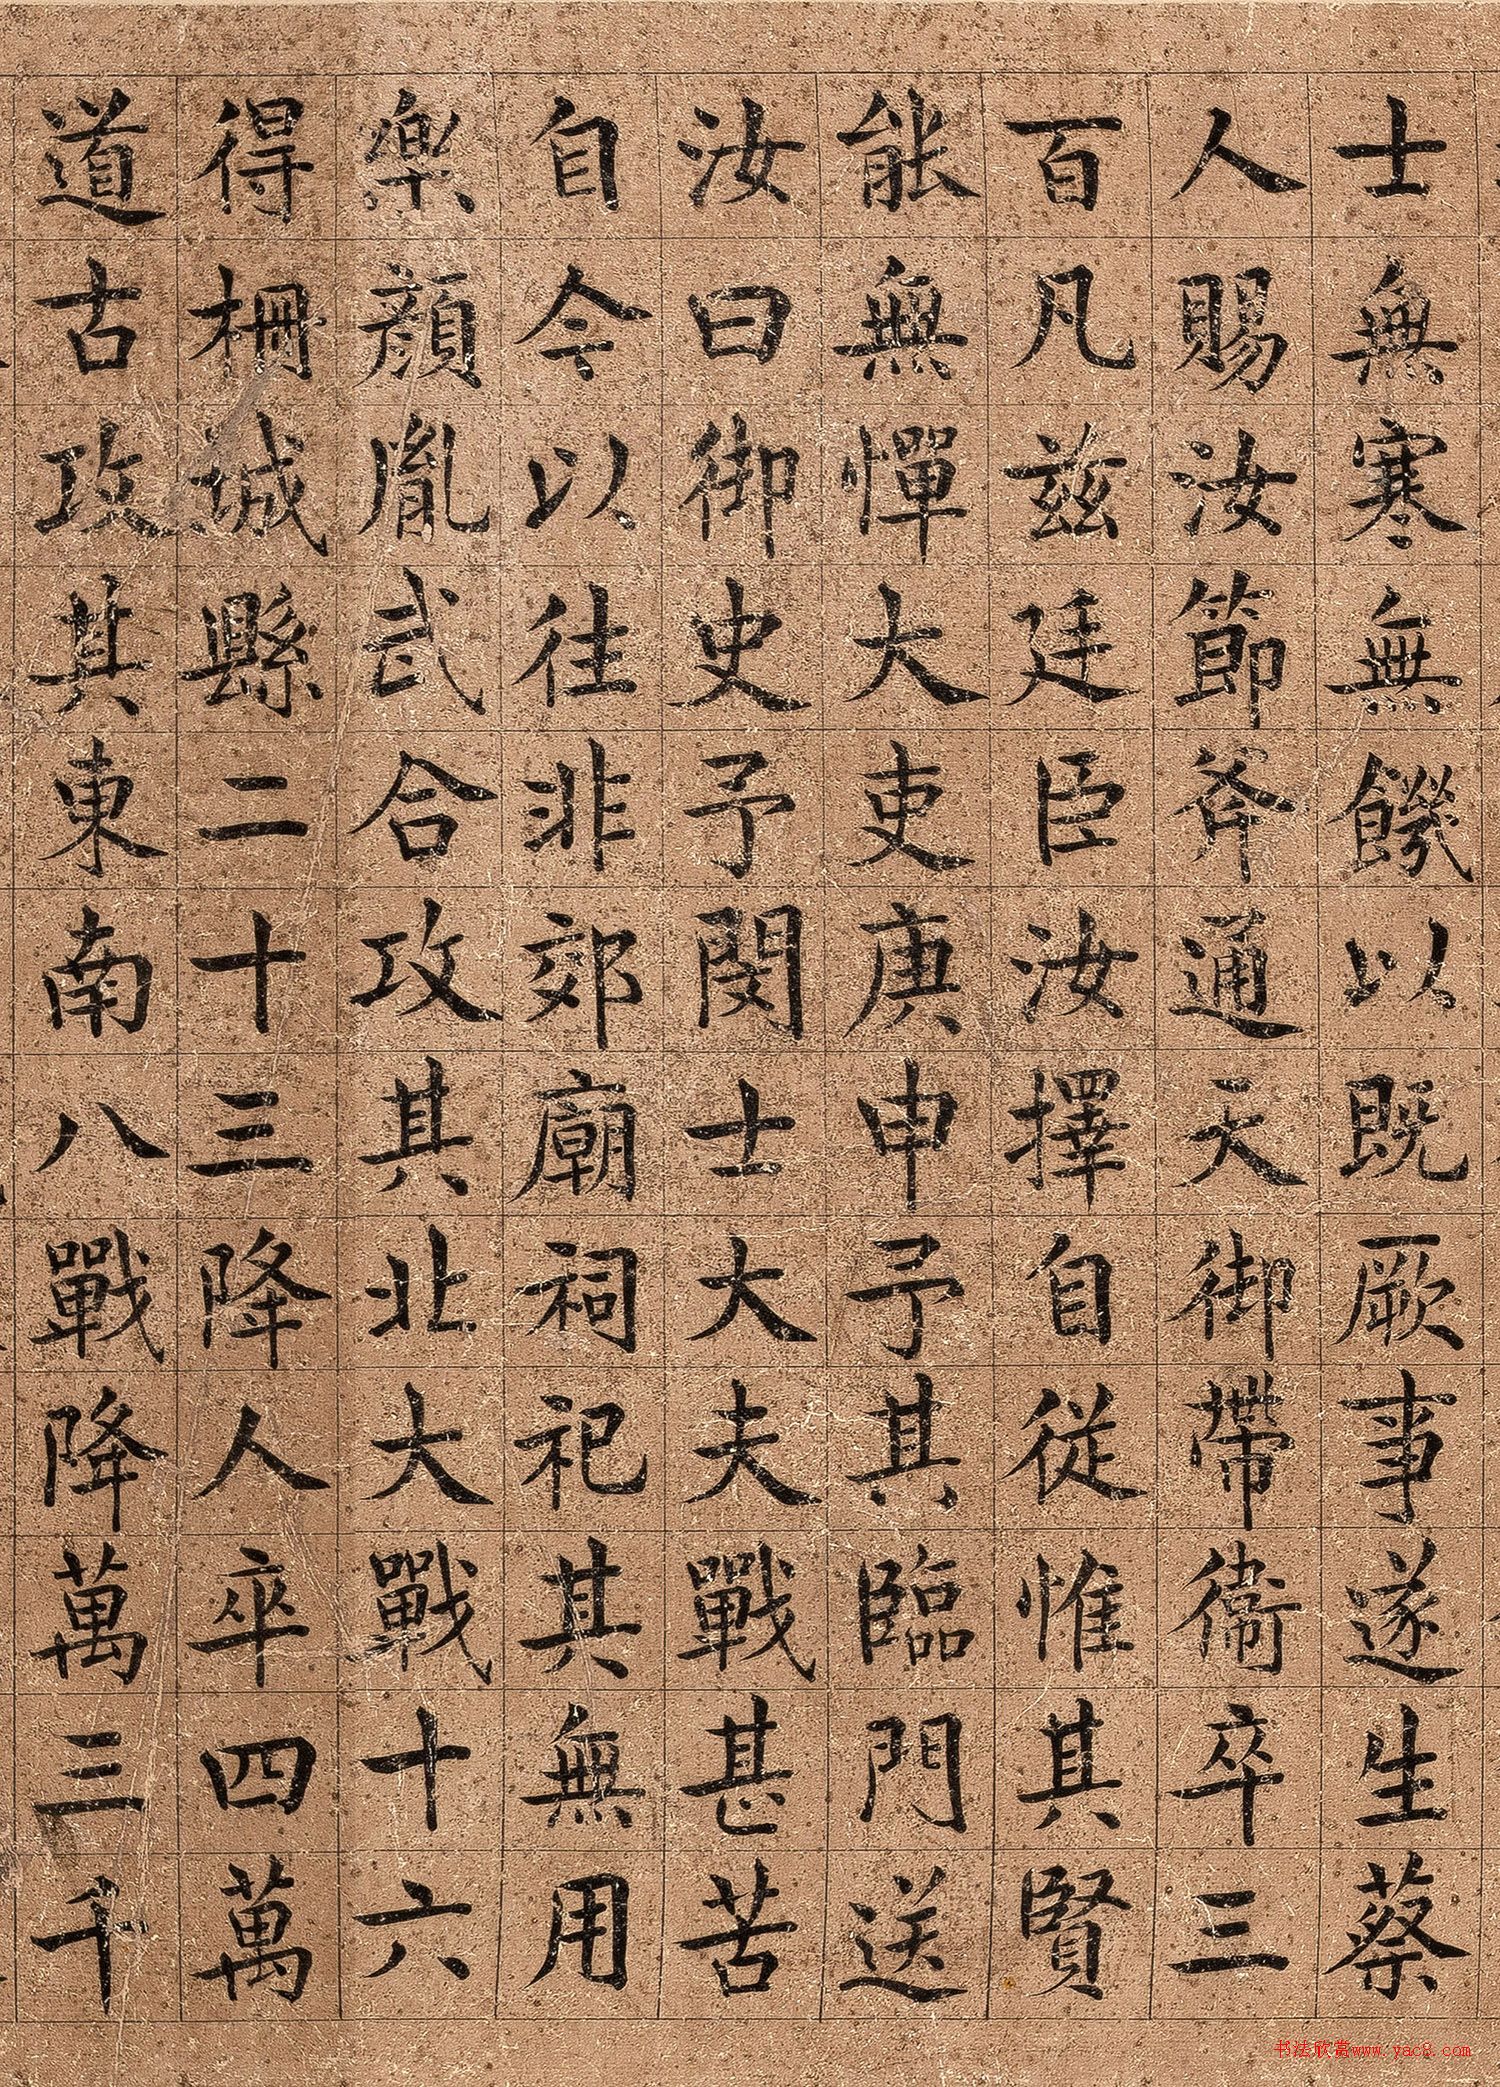 士無寒無饑以既厥事遂生蔡
人賜汝節斧通天御帶衛卒三
百凡兹廷臣汝擇自從惟其賢
能無憚大吏庚申予其臨門送
汝曰御史予閔士大夫戰甚苦
自今以往非郊廟祠祀其無用
樂顔胤武合攻其北大戰十六
得柵城縣二十三降人卒四萬
道古攻其東南八戰降萬三千
书法欣赏www.yac8.com